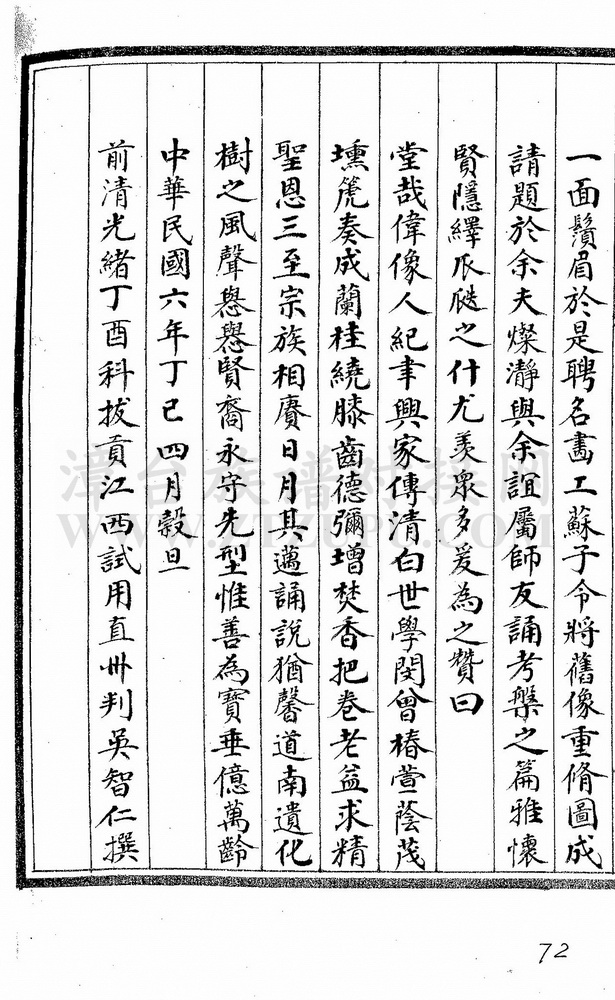 一面鬚眉於是聘名畵工蘇子令將舊像重脩圖成
請題於余夫燦瀞與余誼屬師友誦考槃之篇雅懷
賢隱繹瓜瓞之什尤羨眾多爰為之贊曰
堂哉偉像人紀聿興家傳清白世學閔曾椿萱蔭茂
壎箎奏成蘭桂繞膝齒德彌增焚香把卷老益求精
聖恩三至宗族相賡日月其邁誦說猶馨道南遺化
樹之風聲懋懋賢裔永守先型惟善為寶垂億萬齡
中華民國六年丁巳四月穀旦
前清光緒丁酉科拔貢江西試用直州判吳智仁撰
漳台族谱对接网
72